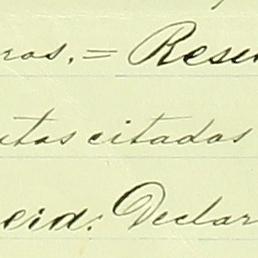 ros, = Rese
utas citadas
eid: Declar